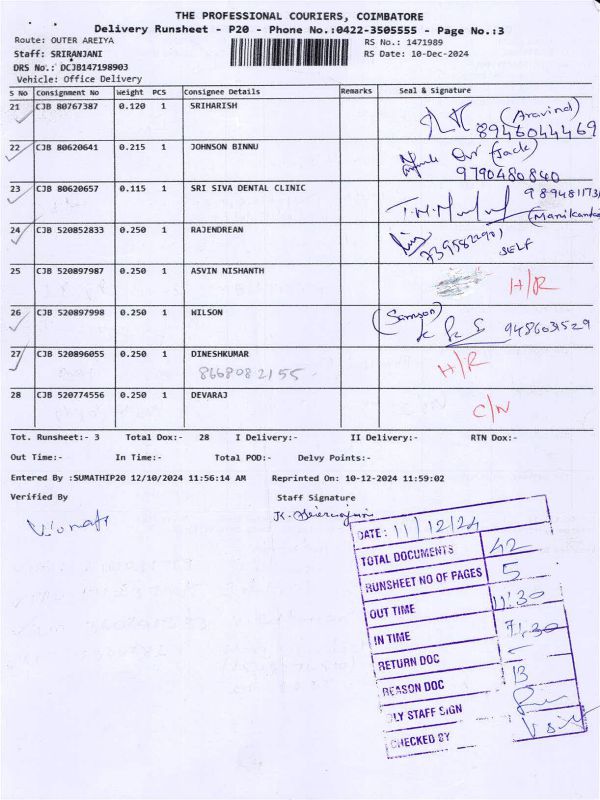 THE PROFESSIONAL COURIERS, COIMBATORE
Delivery Runsheet - P20 - Phone No.:0422-3505555 - Page No.:3
Route: OUTER AREIYA RS No.: 1471989
Staff: SRIRANJANI RS Date: 10-Dec-2024
DRS No.: DCJB147198903
Vehicle: Office Delivery
S No Consignment No Weight PCS Consignee Details Remarks Seal & Signature
21 CJB 80767387 0.120 1 SRIHARISH (Aravind)
8946044469
22 CJB 80620641 0.215 1 JOHNSON BINNU (Jack)
9790480840
23 CJB 80620657 0.115 1 SRI SIVA DENTAL CLINIC
24 CJB 520852833 0.250 1 RAJENDREAN
SELF
25 CJB 520897987 0.250 1 ASVIN NISHANTH H/R
26 CJB 520897998 0.250 1 WILSON (Samson) 9486031529
27 CJB 520896055 0.250 1 DINESHKUMAR H/R
8668082155
28 CJB 520774556 0.250 1 DEVARAJ C/N
Tot. Runsheet:- 3 Total Dox:- 28 I Delivery:- II Delivery:- RTN Dox:-
Out Time:- In Time:- Total POD:- Delvy Points:-
Entered By :SUMATHIP20 12/10/2024 11:56:14 AM Reprinted On: 10-12-2024 11:59:02
Verified By Staff Signature
DATE: 11/12/24
TOTAL DOCUMENTS 42
RUNSHEET NO OF PAGES 5
OUT TIME 11:30
IN TIME
RETURN DOC
REASON DOC 13
DLY STAFF SIGN
CHECKED BY